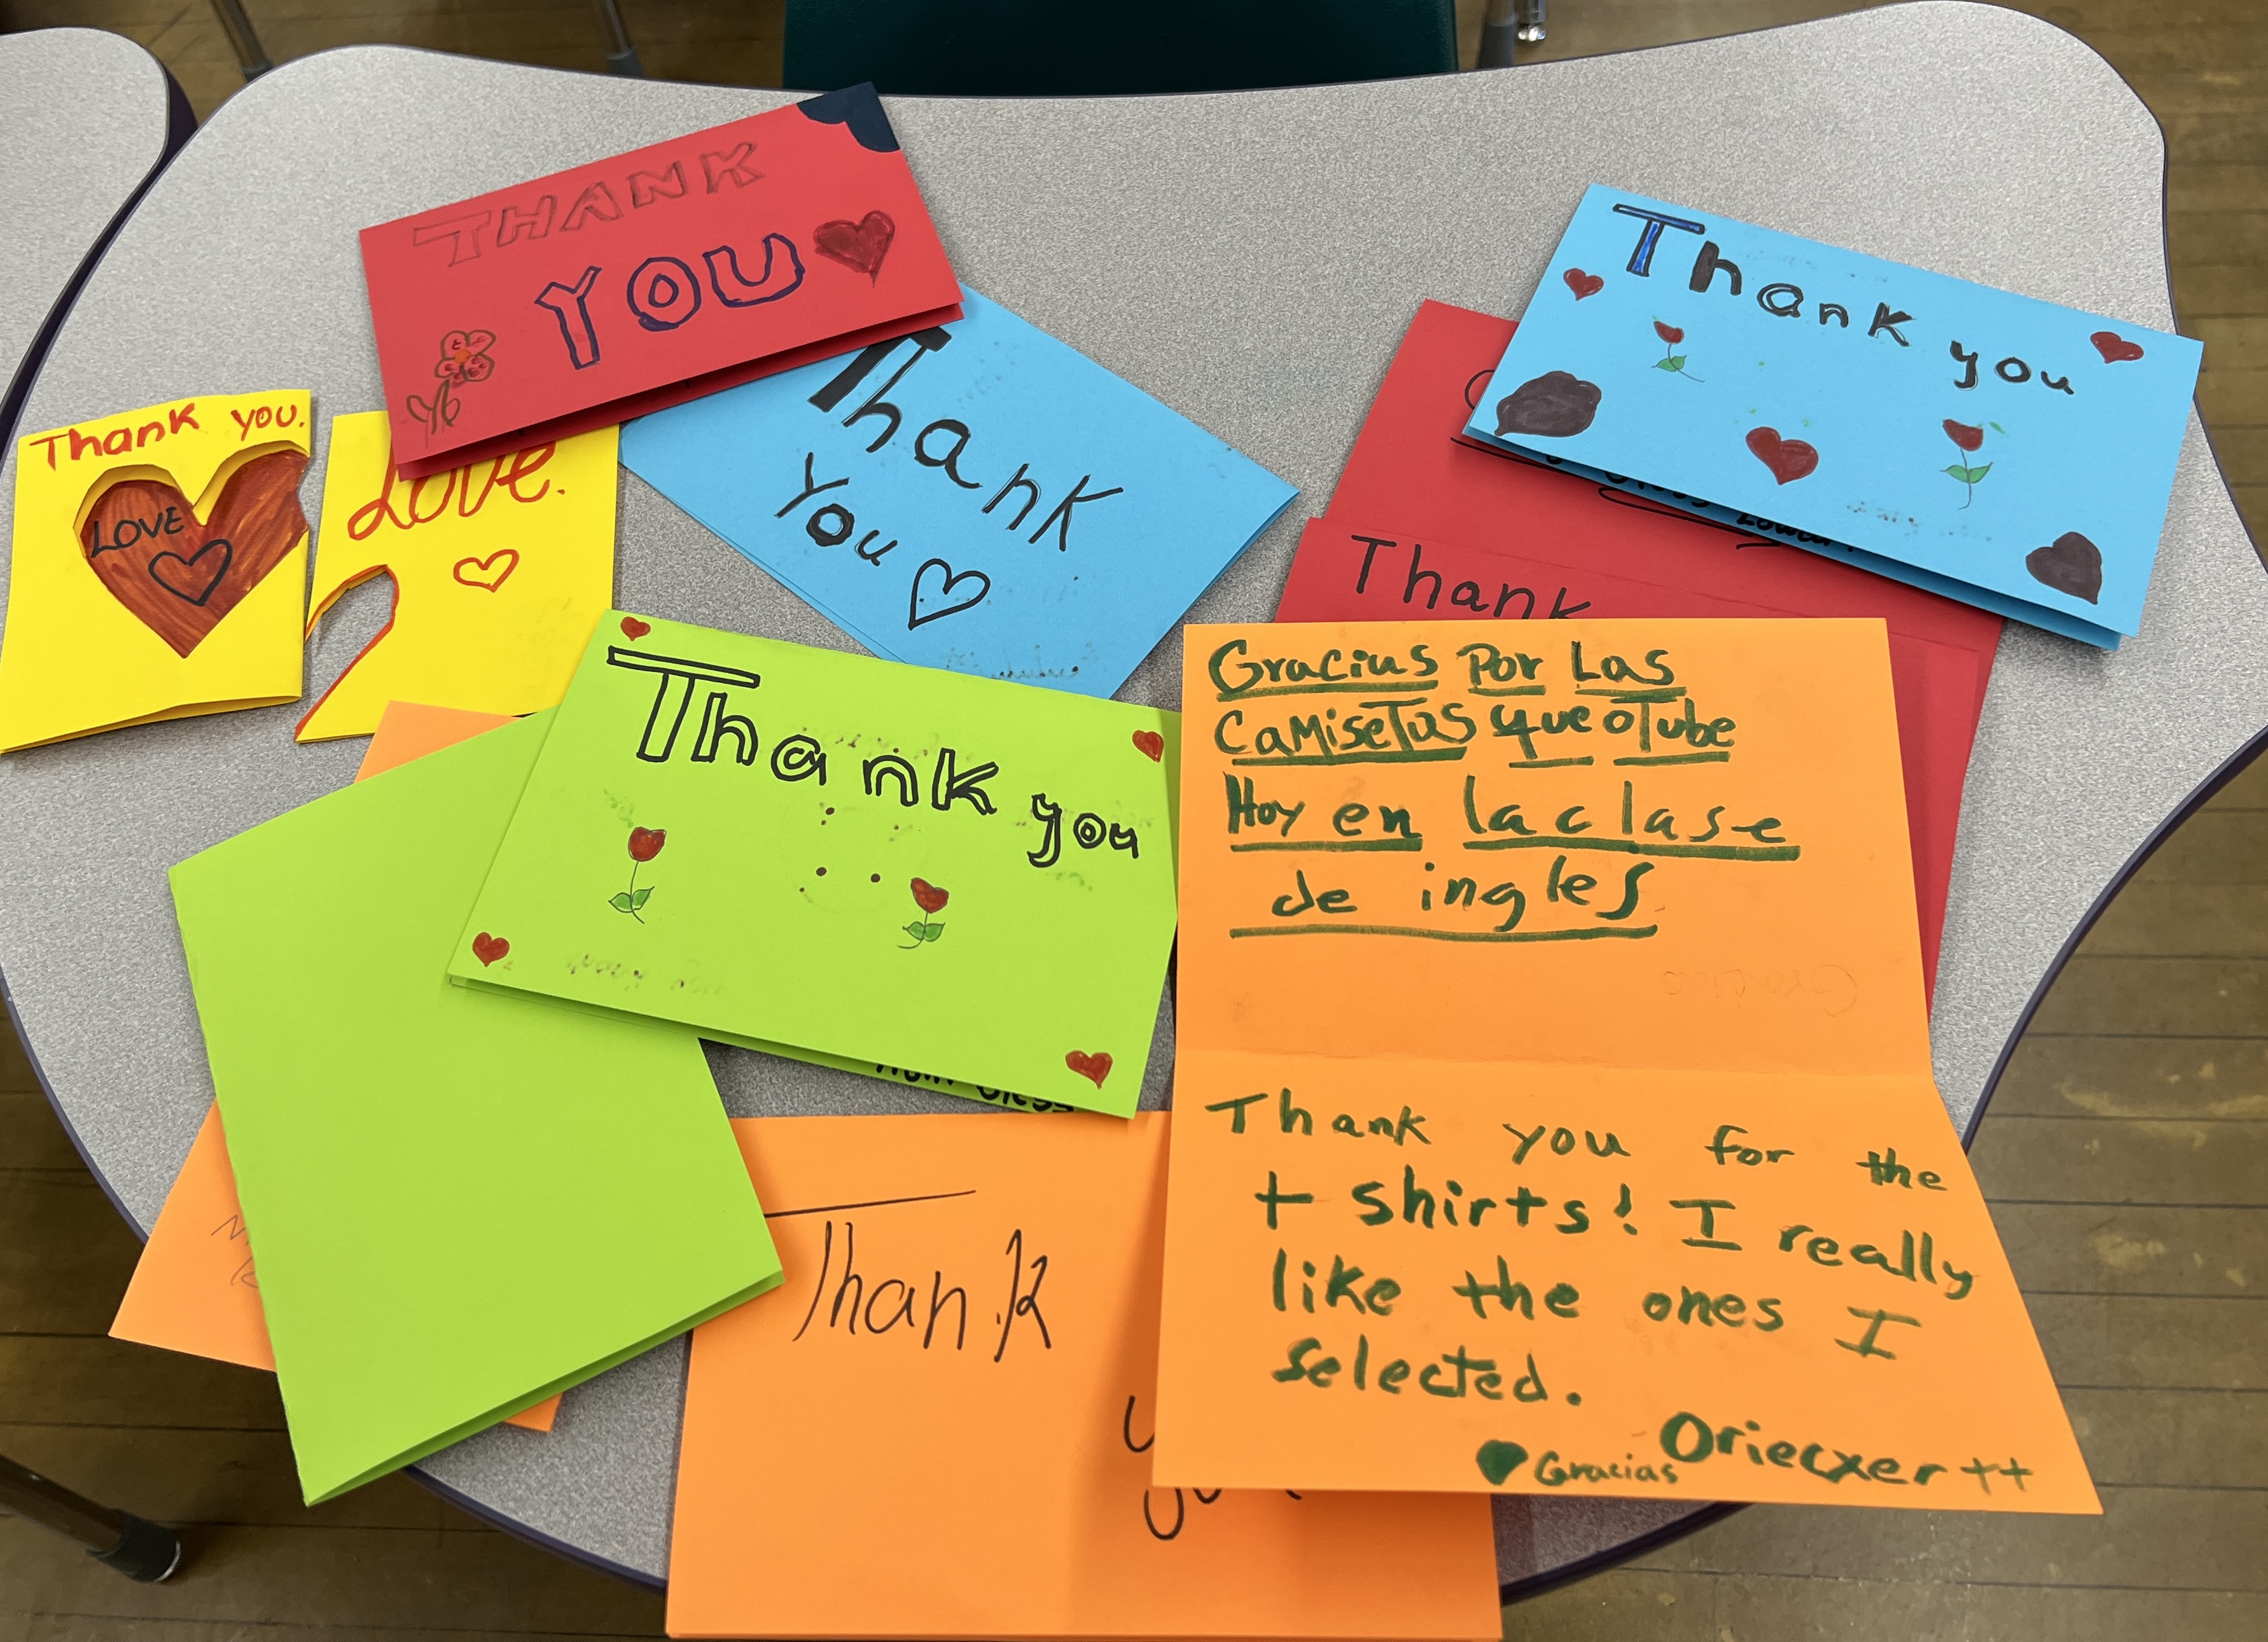 THANK
YOU
Thank you.
LOVE
Love.
Thank
You
Thank you
Thank
Thank you
Gracius Por Las
CamiseTas que oTube
Hoy en la clase
de ingles
Thank you for the
t shirts! I really
like the ones I
selected.
Gracias Oriecxer ++
from
Thank